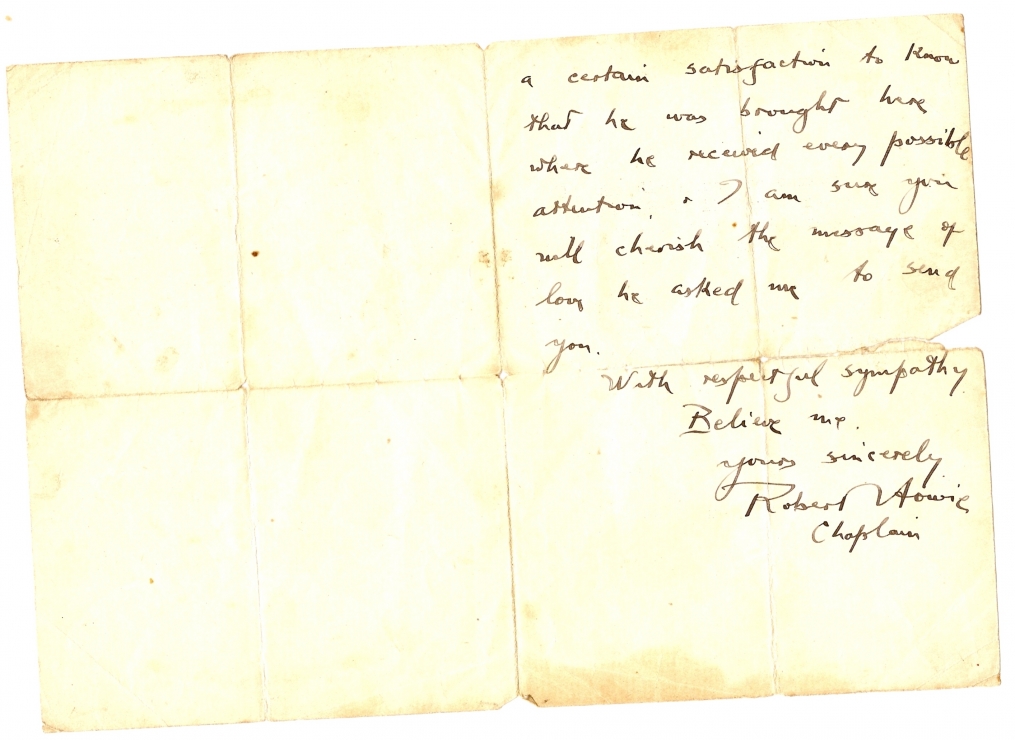 a certain satisfaction to know
that he was brought here
where he received every possible
attention, & I am sure you
will cherish the message of
love he asked me to send
you.
With respectful sympathy
Believe me.
yours sincerely
Robert Howie
Chaplain